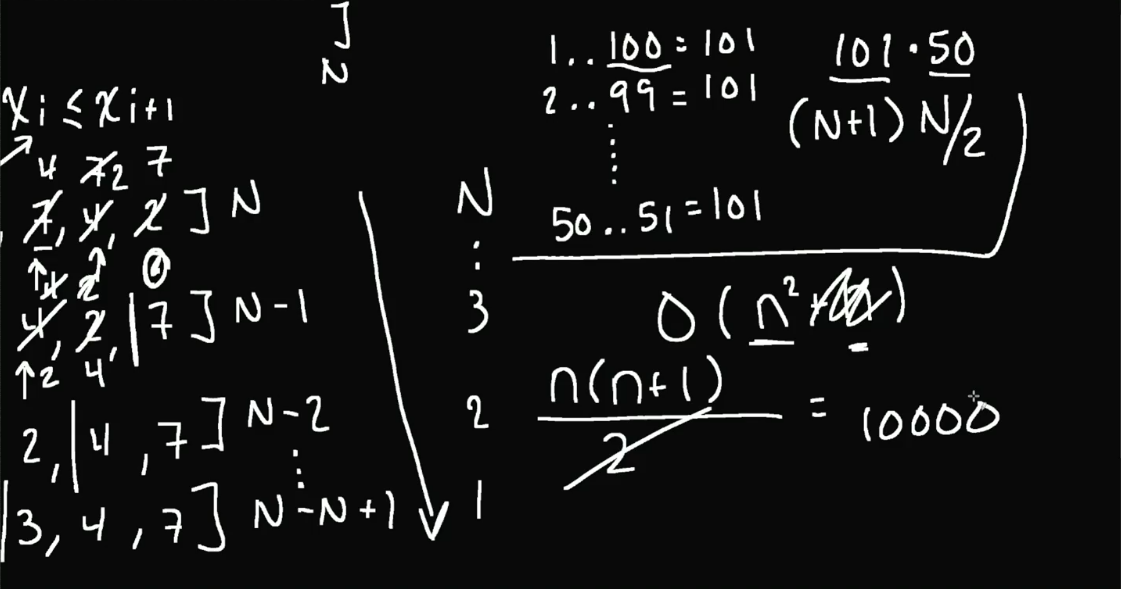 ]
N
xi ≤ xi+1
4 7 2 7
7, 4, 2 ] N
4 2
4, 2, | 7 ] N-1
2 4
2, | 4, 7 ] N-2
⋮
| 3, 4, 7 ] N-N+1
N
⋮
3
2
1
1..100 = 101
2..99 = 101
⋮
50..51 = 101
101 · 50
(N+1) N/2
O(n² + )
n(n+1)
2
= 10000